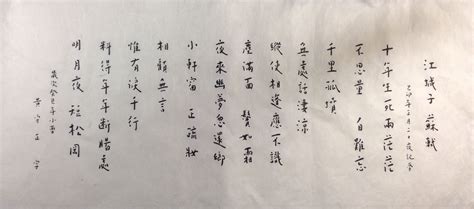 江城子 蘇軾
乙卯年正月二十夜記夢
十年生死兩茫茫
不思量 自難忘
千里孤墳
無處話淒涼
縱使相逢應不識
塵滿面 鬢如霜
夜來幽夢忽還鄉
小軒窗 正梳妝
相顧無言
惟有淚千行
料得年年斷腸處
明月夜 短松岡
歲次癸巳年小雪